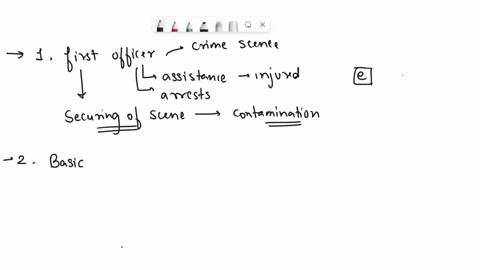 → 1. first officer → crime scene
→ assistance → injured
e
→ arrests
securing of scene → contamination
→ 2. Basic